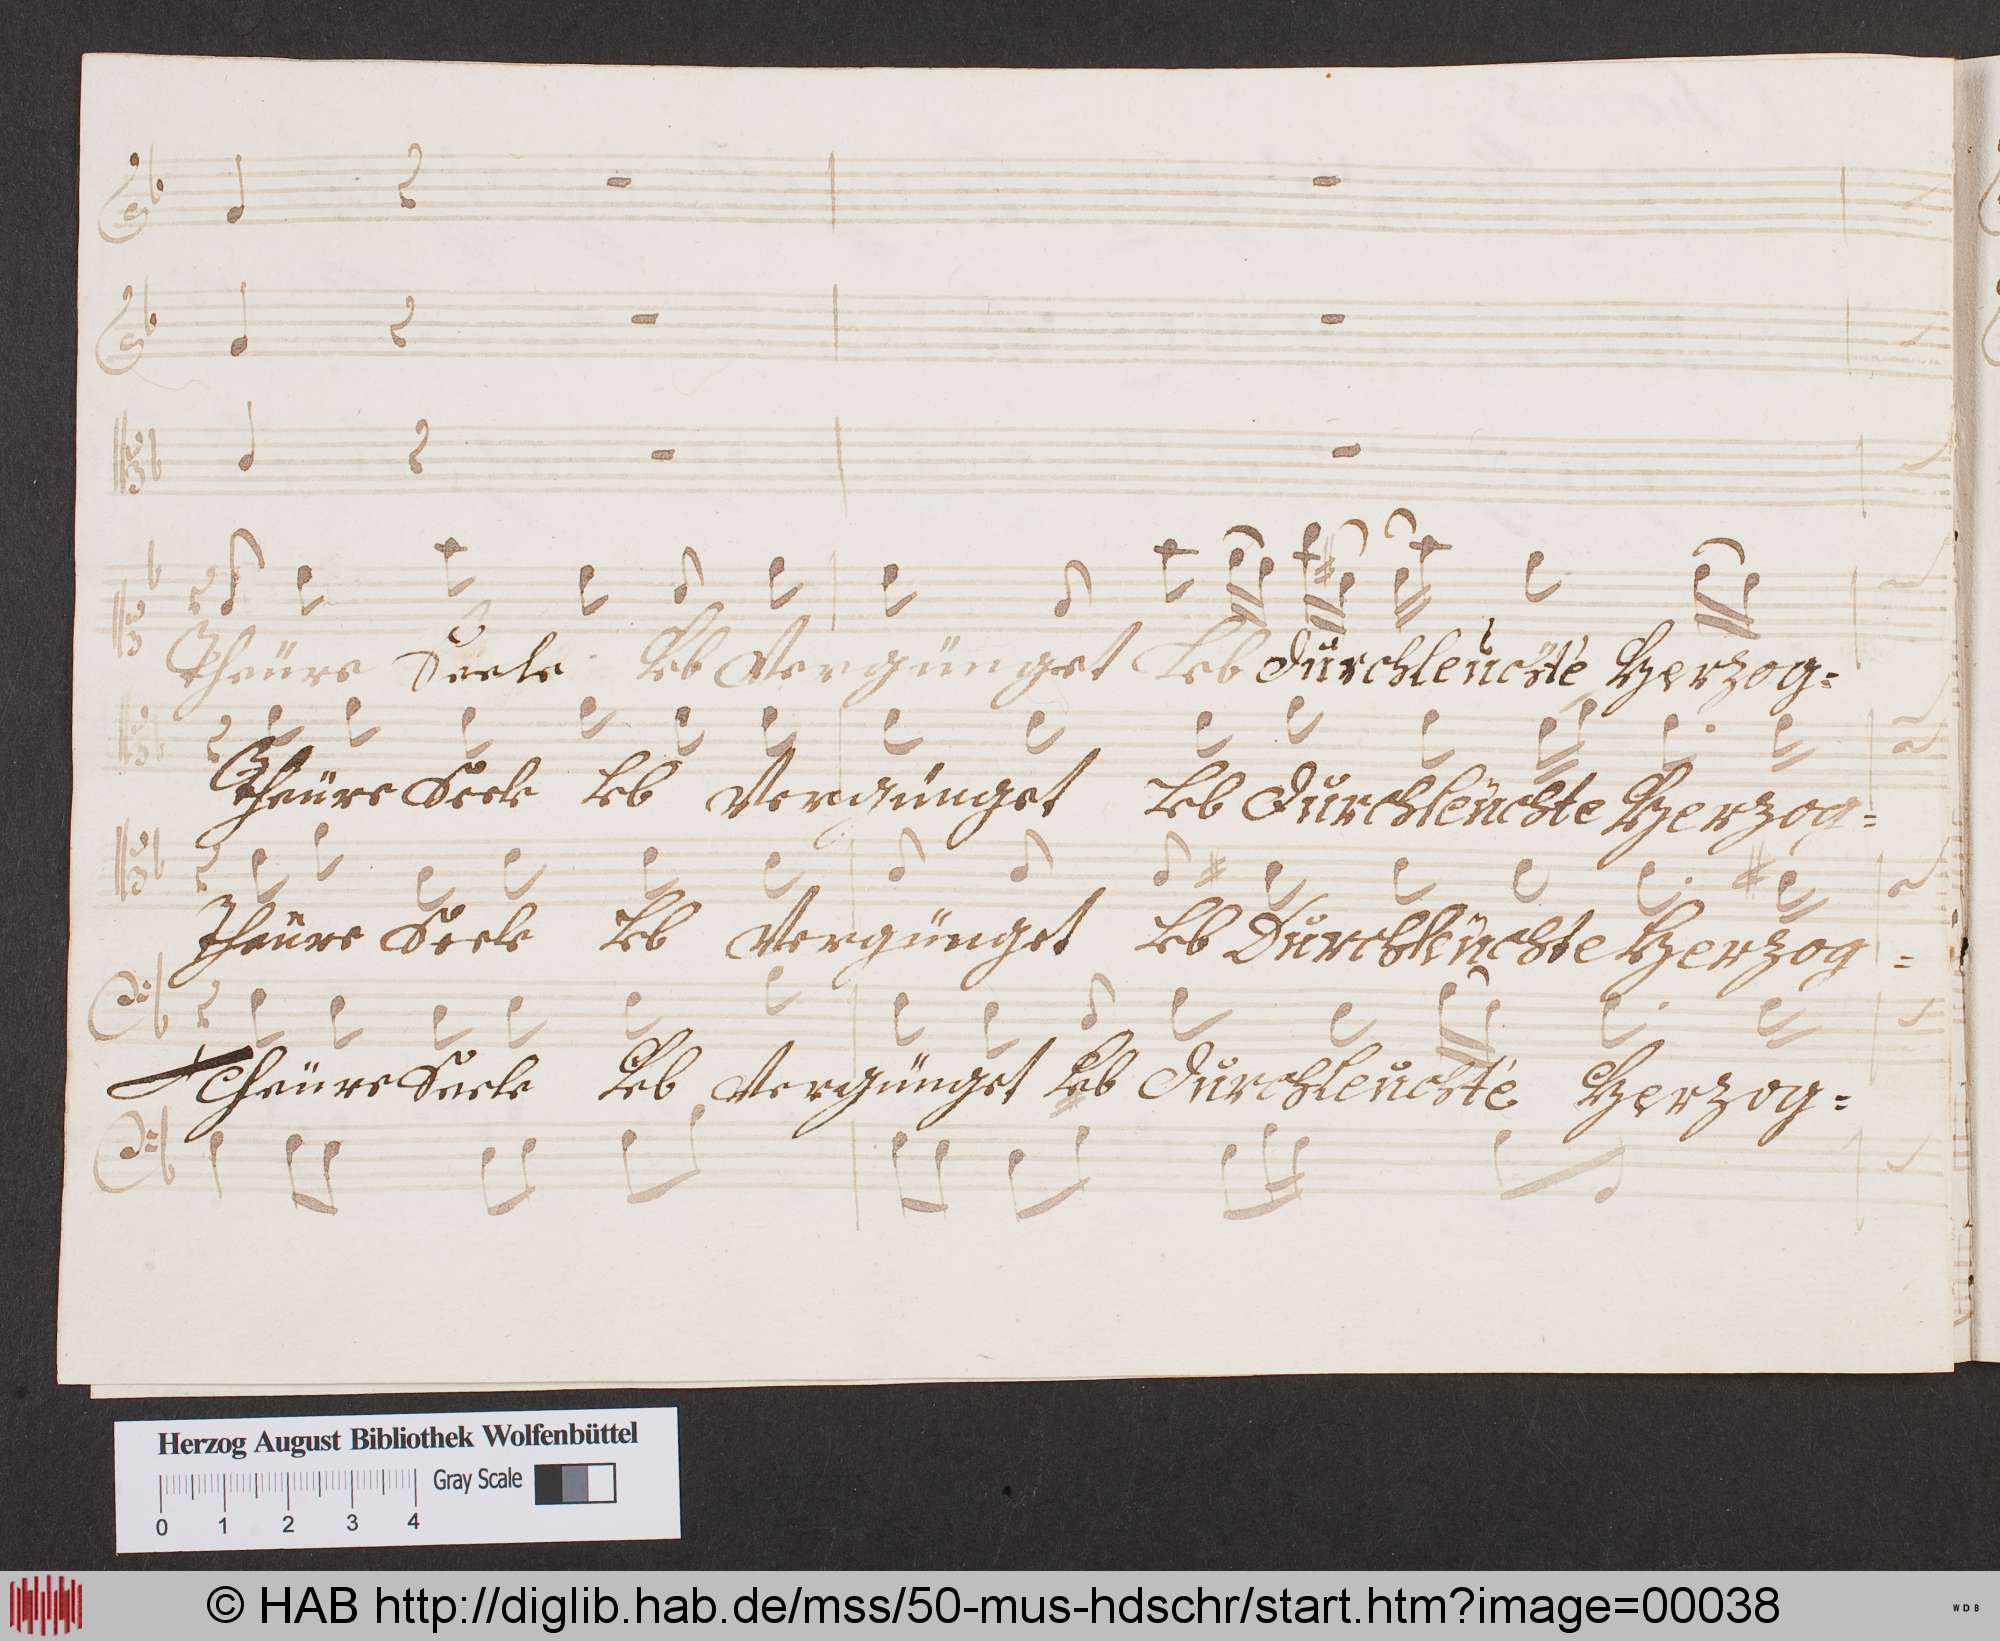 Theüre Seele Leb Vergünget Leb Durchleuchte Herzog=
Theüre Seele Leb Vergünget Leb Durchleüchte Herzog=
Theüre Seele Leb Vergünget Leb Durchleüchte Herzog=
Theüre Seele Leb Vergünget Leb Durchleuchte Herzog=
Herzog August Bibliothek Wolfenbüttel
Gray Scale
0 1 2 3 4
© HAB http://diglib.hab.de/mss/50-mus-hdschr/start.htm?image=00038
WDB